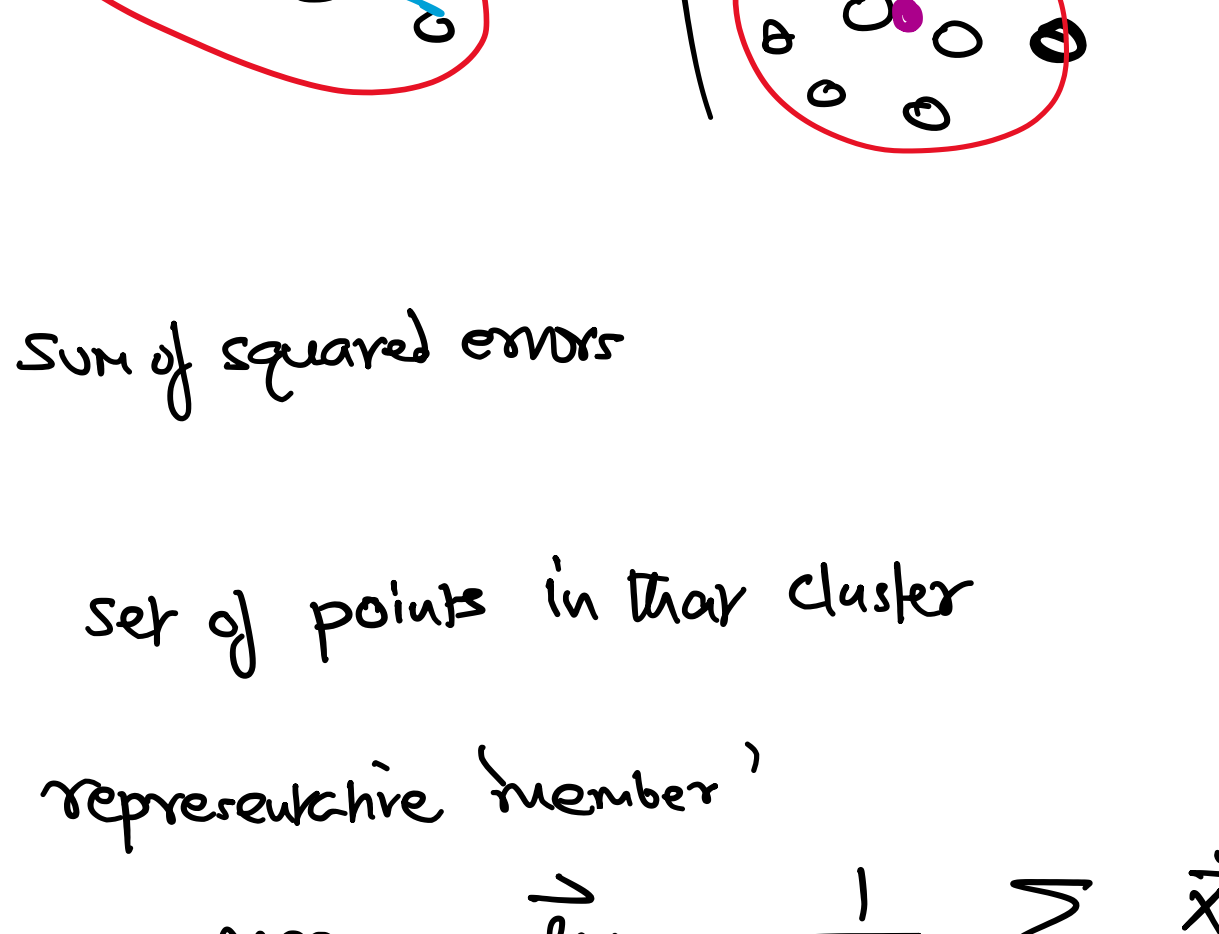 sum of squared errors
set of points in that cluster
representative 'member'
1 Σ x